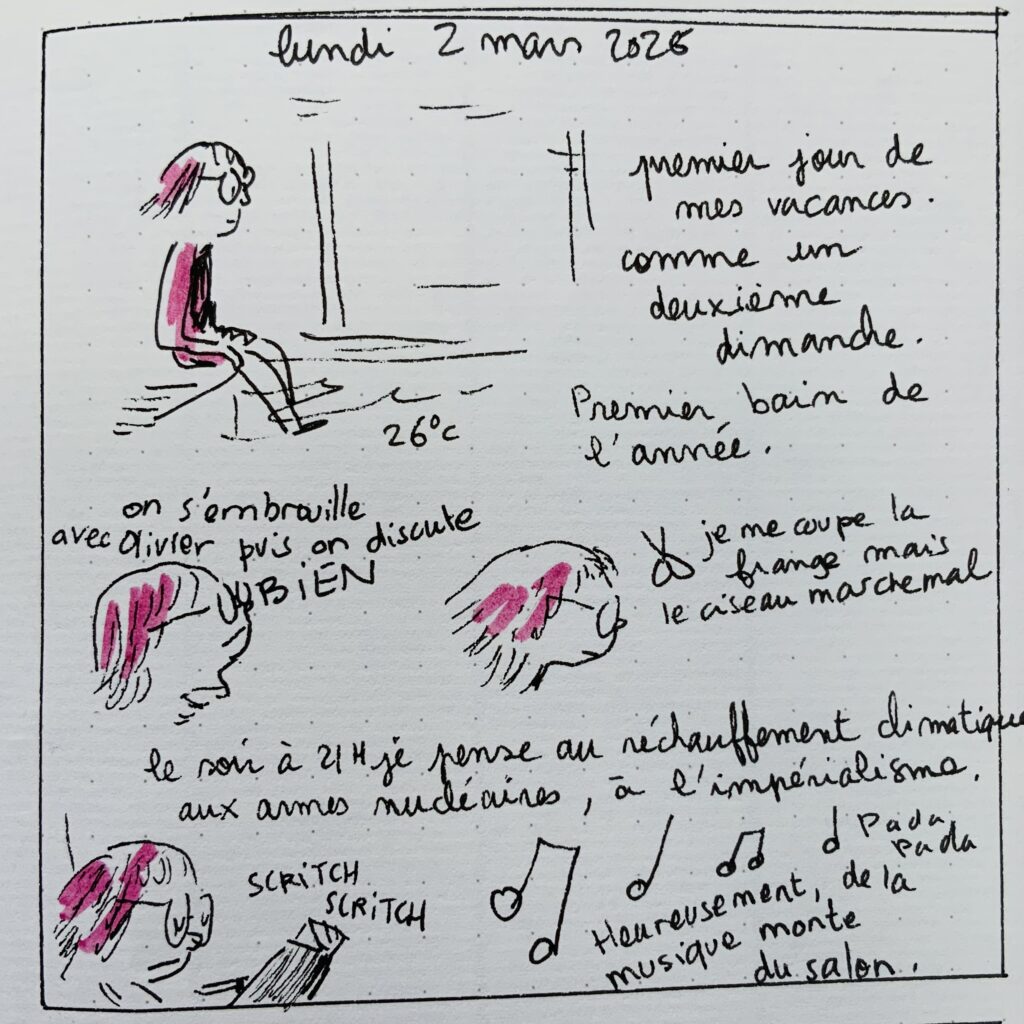 lundi 2 mars 2026
premier jour de
mes vacances.
comme un
deuxième
dimanche.
Premier bain de
l'année.
26°C
on s'embrouille
avec Olivier puis on discute
BIEN
je me coupe la
frange mais
le ciseau marche mal
le soir à 21H je pense au réchauffement climatique
aux armes nucléaires, à l'impérialisme.
SCRITCH
SCRITCH
Pada
pada
Heureusement, de la
musique monte
du salon.